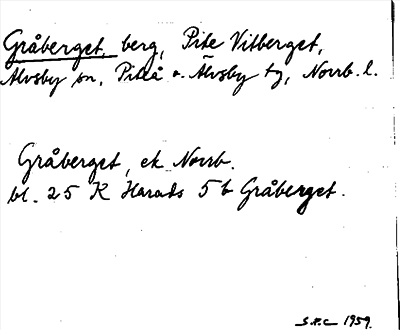 Gråberget, berg, Pite Vitberget,
Älvsby sn, Piteå o. Älvsby tg, Norrb. l.
Gråberget, ek Norrb.
bl. 25 K Harads 5 b Gråberget.
S.P.C 1959.